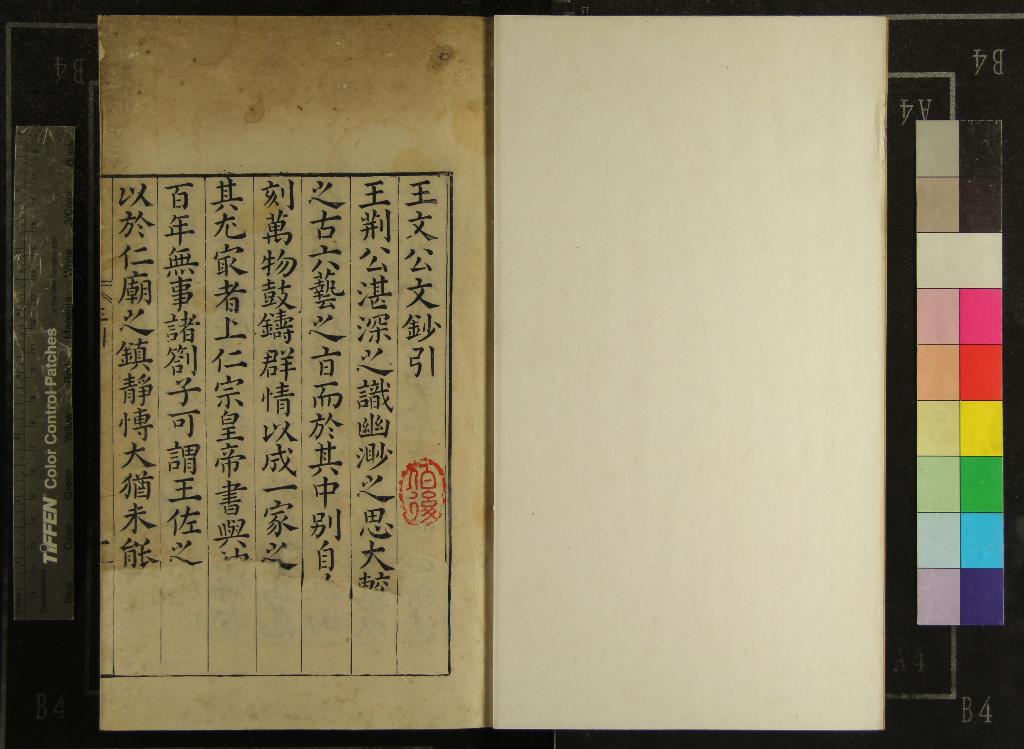 王文公文鈔引
王荆公湛深之識幽渺之思大較
之古六藝之㫖而於其中别自
刻萬物鼓鑄群情以成一家之
其尤㝡者上仁宗皇帝書與
百年無事諸劄子可謂王佐之
以於仁廟之鎮靜慱大猶未能
B4
A4
B4
A4
B4
B4
TIFFEN Color Control Patches